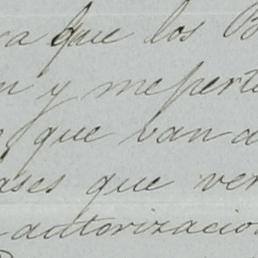 que los B
y me perte
que van a
ases que ver
autorizacion